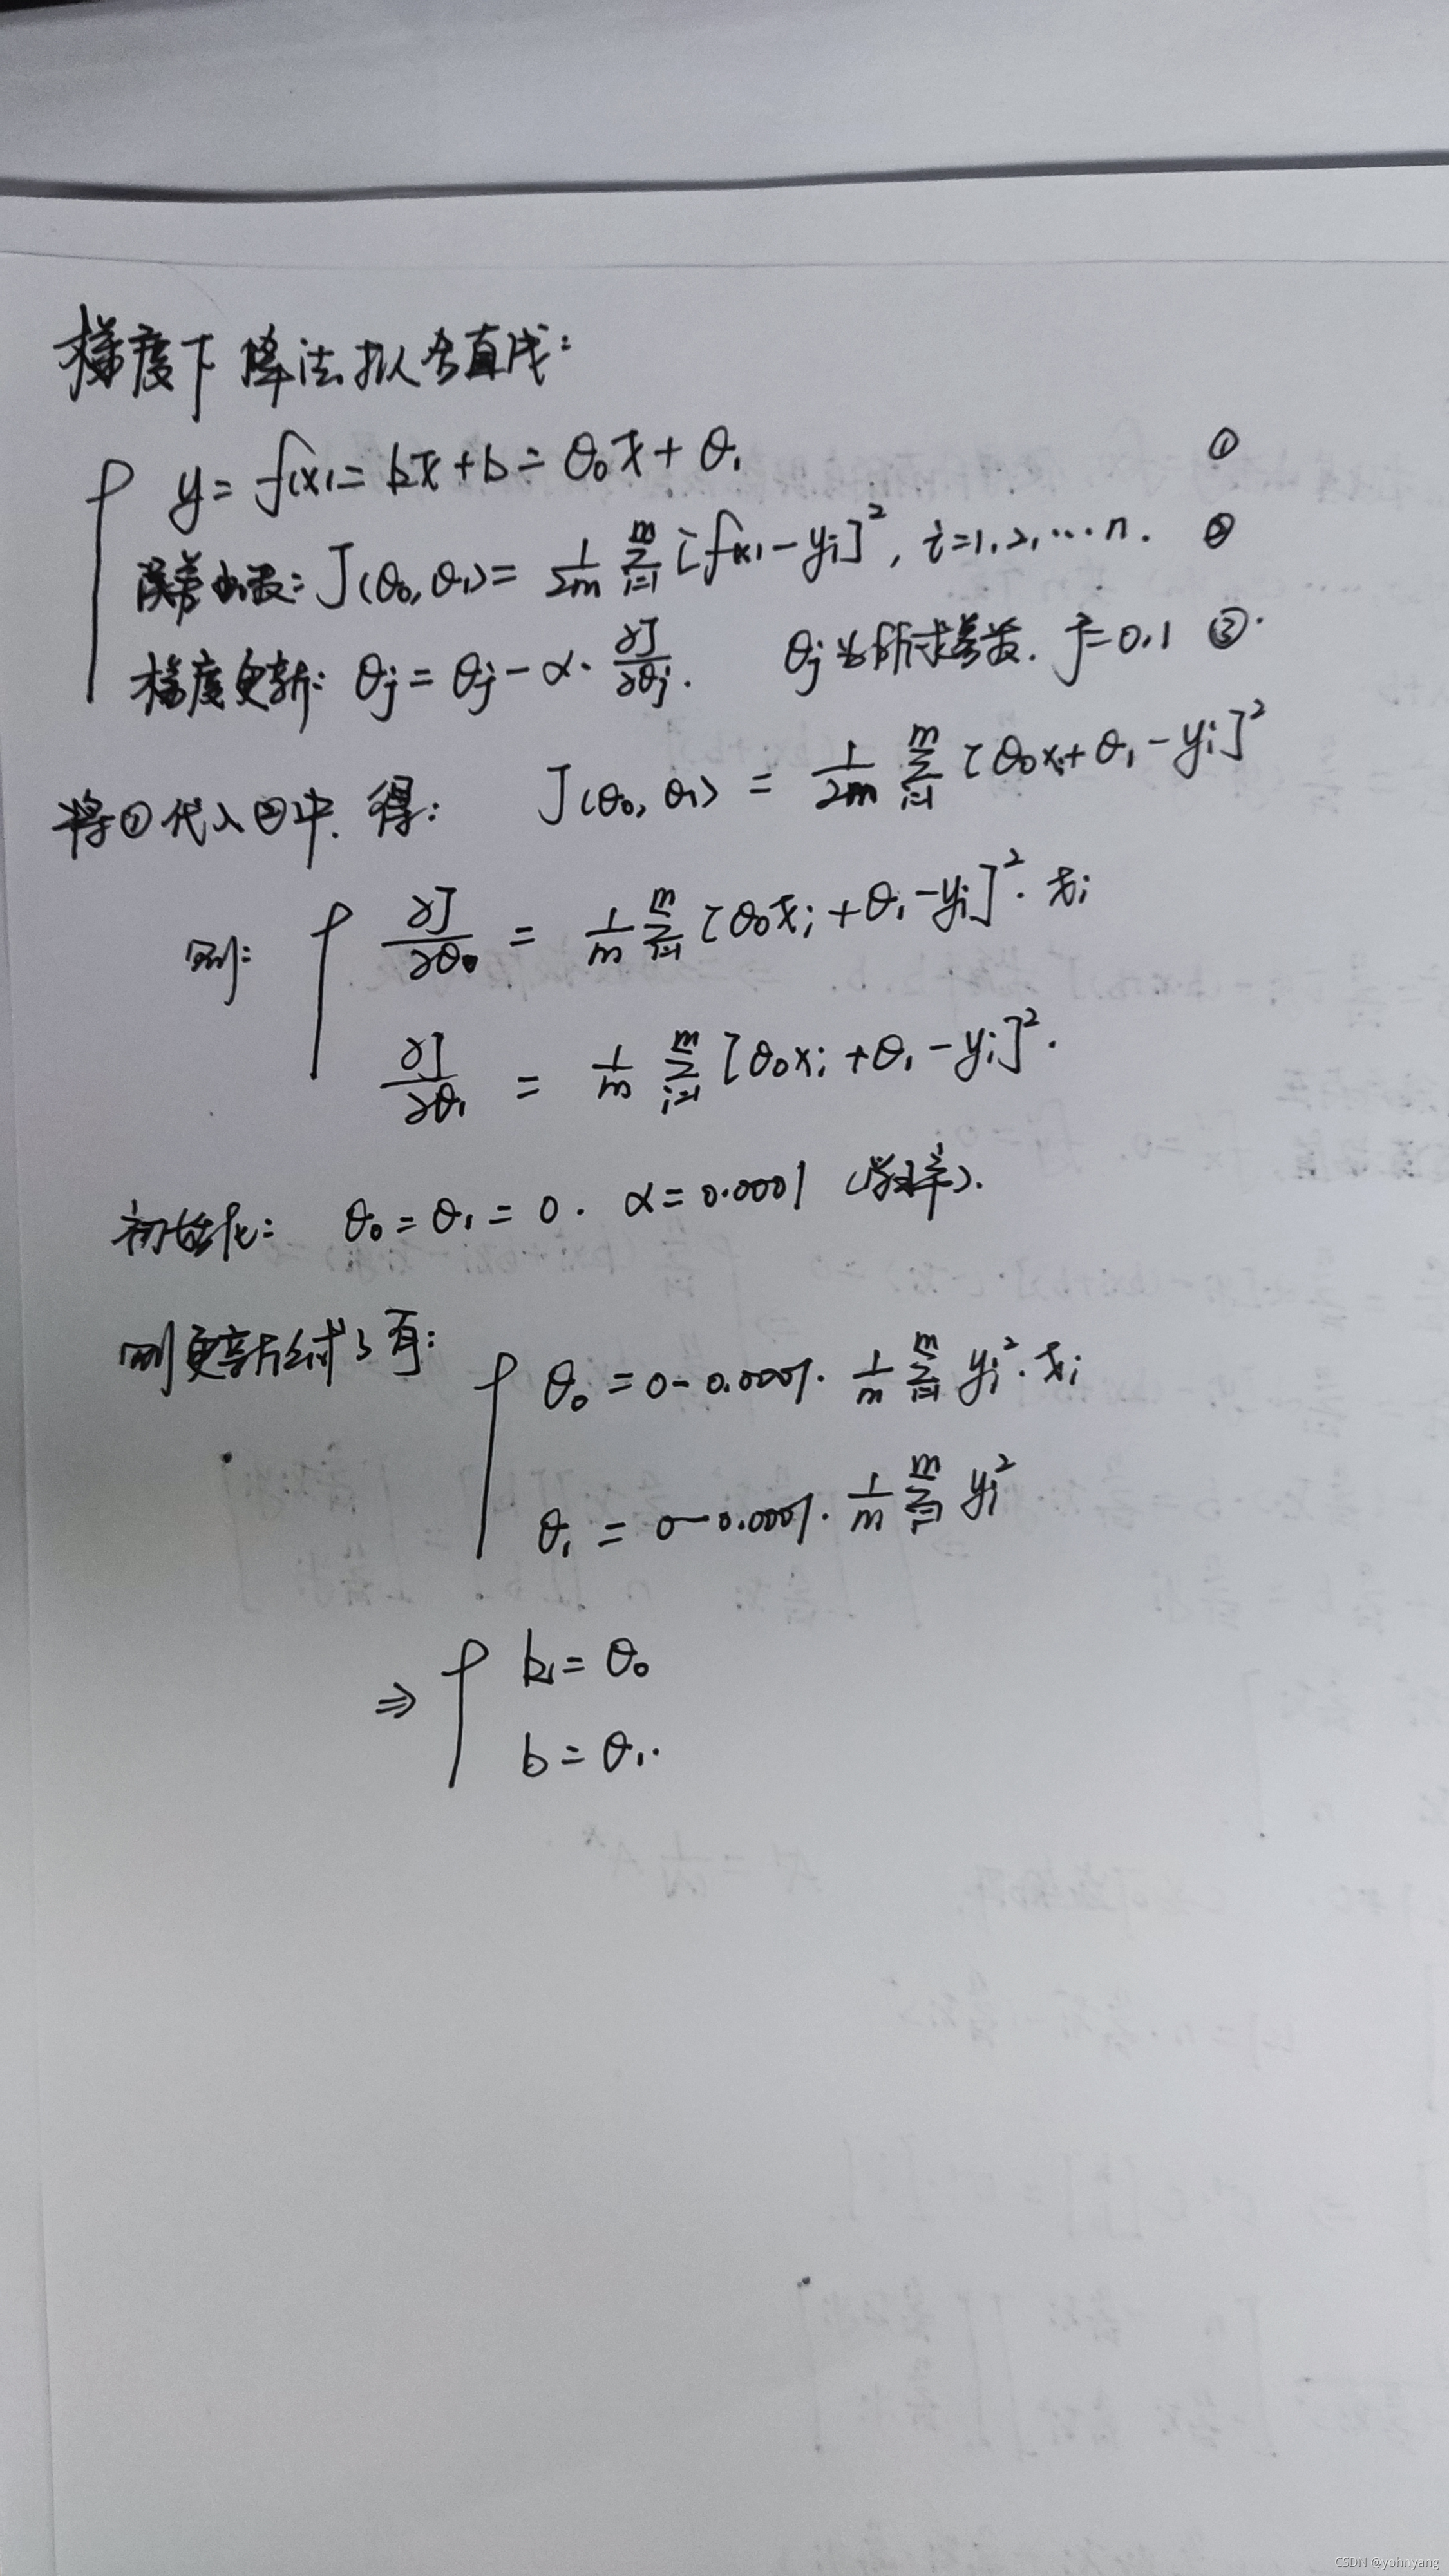 梯度下降法拟合直线:
y = f(x) = kx + b = θ₀x + θ₁ ①
误差函数: J(θ₀, θ₁) = 1/2m ∑ᵢ₌₁ᵐ [f(x) - yᵢ]², i=1,2,...n. ②
梯度更新: θⱼ = θⱼ - α · ∂J/∂θⱼ. θⱼ为所求参数. j=0,1 ③.
将①代入②中, 得: J(θ₀, θ₁) = 1/2m ∑ᵢ₌₁ᵐ [θ₀xᵢ + θ₁ - yᵢ]²
则: ∂J/∂θ₀ = 1/m ∑ᵢ₌₁ᵐ [θ₀xᵢ + θ₁ - yᵢ]² · xᵢ
∂J/∂θ₁ = 1/m ∑ᵢ₌₁ᵐ [θ₀xᵢ + θ₁ - yᵢ]².
初始化: θ₀ = θ₁ = 0. α = 0.0001 (学习率).
则更新后有:
θ₀ = 0 - 0.0001 · 1/m ∑ᵢ₌₁ᵐ yᵢ² · xᵢ
θ₁ = 0 - 0.0001 · 1/m ∑ᵢ₌₁ᵐ yᵢ²
⇒ k = θ₀
b = θ₁.
CSDN @yohnyang